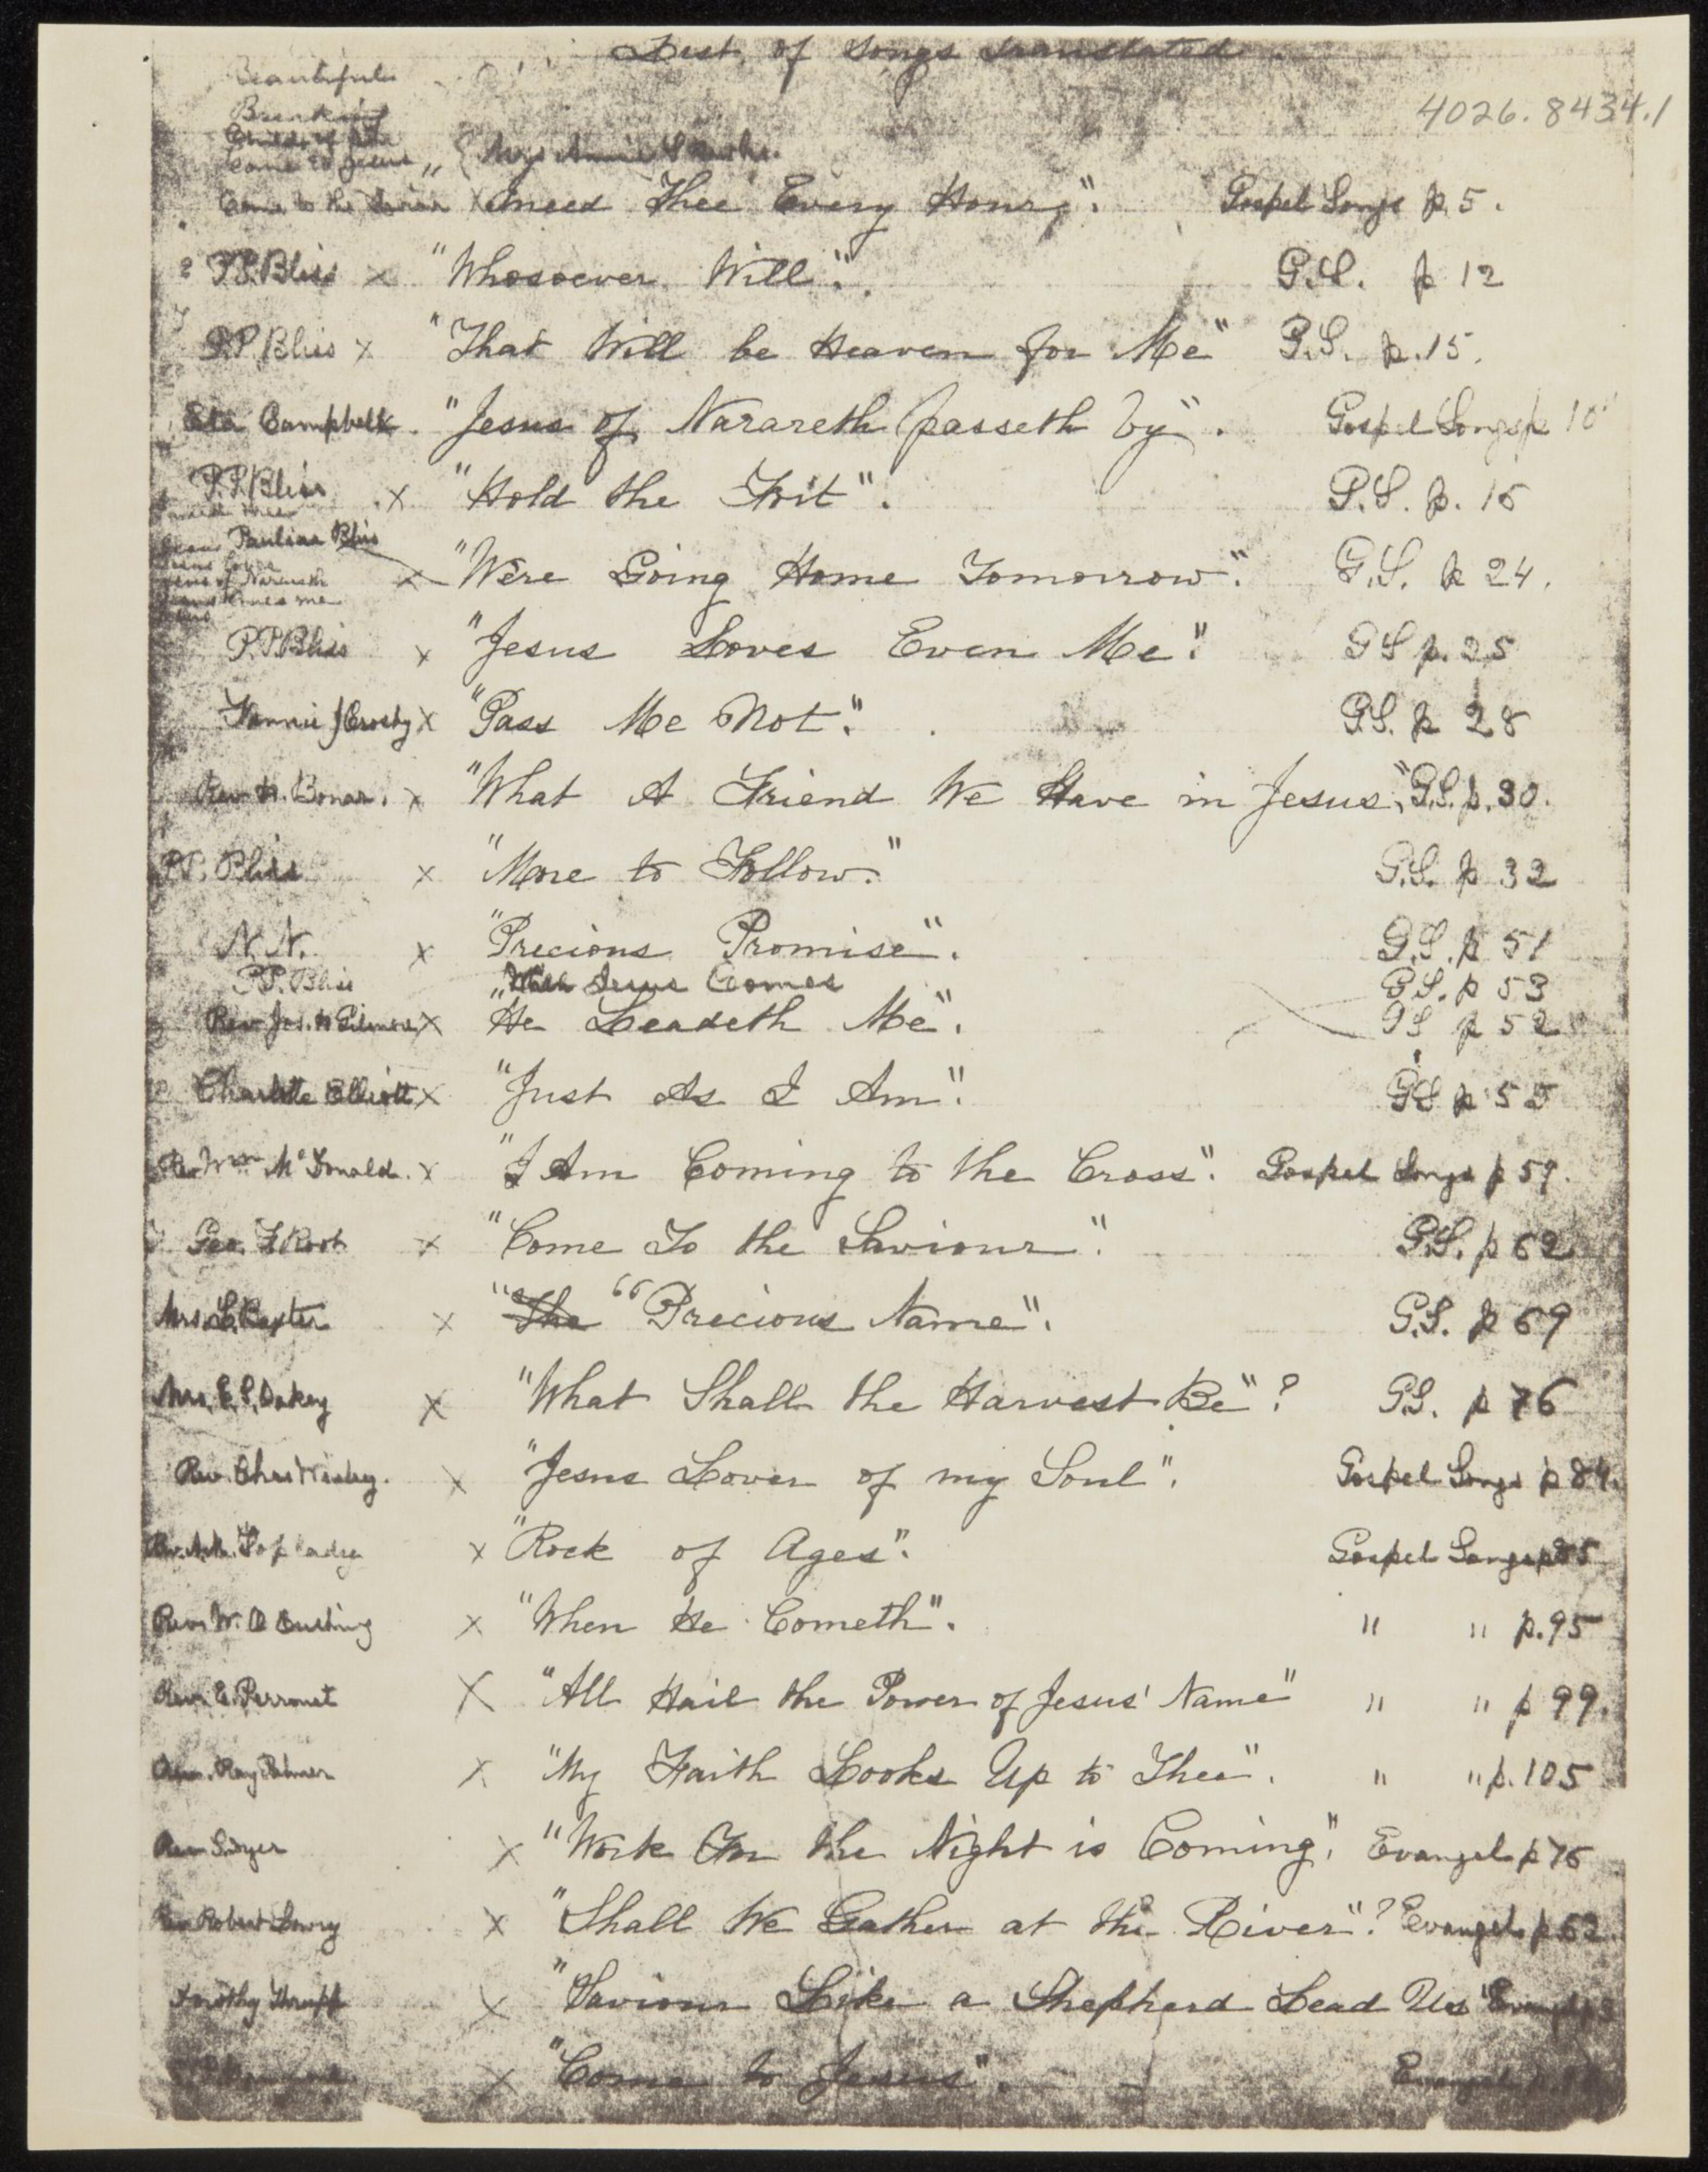 List of Songs Translated.
Beautiful
4026.8434.1
Come to Jesus „ { Mrs Annie S.
Come to the Saviour x I need Thee Every Hour," Gospel Songs p. 5.
P.P. Bliss x "Whosoever Will". G.S. p 12
P.P. Bliss x "That Will be Heaven for Me" G.S. p. 15.
Eta Campbell. "Jesus of Nazareth passeth by". Gospel Songs p 10
P.P. Bliss x "Hold the Fort". G.S. p. 15
Pauline Bliss
x "We're Going Home Tomorrow." G.S. p 24.
Jesus of Nazareth
P.P. Bliss x "Jesus Loves Even Me." G S p. 25
Fannie J Crosby x "Pass Me Not." G.S. p 28
Rev H. Bonar. x "What A Friend We Have in Jesus", G.S. p. 30.
P.P. Bliss x "More to Follow." G.S. p 32
N. N. x "Precious Promise". G.S. p 51
P.P. Bliss When Jesus Comes G.S. p 53
Rev Jos. H Gilmore x "He Leadeth Me". G S p 52
Charlotte Elliott x "Just As I Am". G S p 55
Rev Wm McDonald. x "I Am Coming to the Cross". Gospel Songs p 59.
Geo. F Root x "Come To the Saviour". G.S. p 62
Mrs. L. Baxter x "The "Precious Name". G.S. p 69
Mrs. E.S. Oakey x "What Shall the Harvest Be"? G.S. p 76
Rev. Chas Wesley. x "Jesus Lover of my Soul". Gospel Songs p 84.
Rev. A.M. Toplady x "Rock of Ages". Gospel Songs p 85
Rev. W. O Cushing x "When He Cometh". " " p. 95
Rev. E. Perronet x "All Hail the Power of Jesus' Name" " " p 99.
Rev. Ray Palmer x "My Faith Looks Up to Thee". " " p. 105
Rev S. Dyer x "Work For the Night is Coming". Evangel p 75
Rev Robert Lowry x "Shall We Gather at the River"? Evangel p 62.
Dorothy Thrupp x "Saviour Like a Shepherd Lead Us"
x "Come to Jesus". Evangel